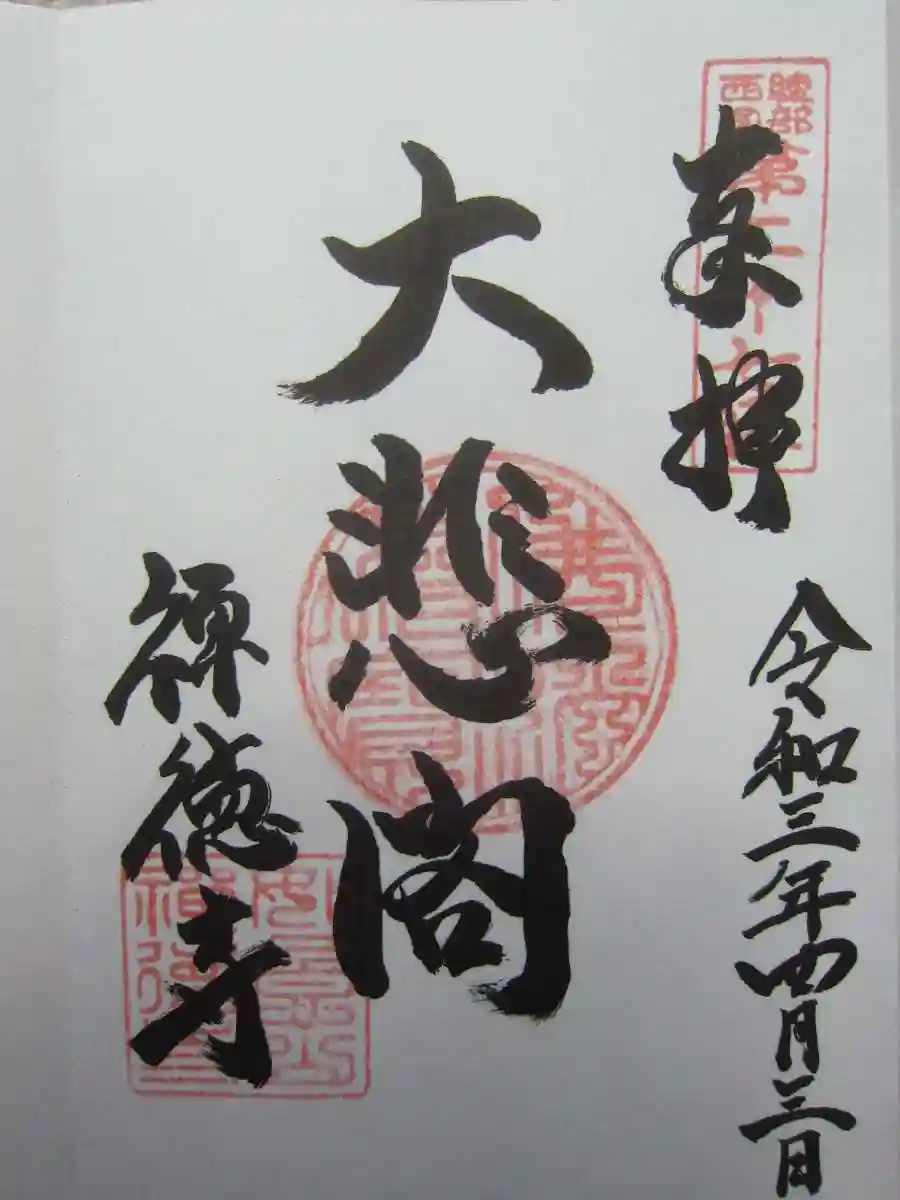 奉拝
綾部
西国
第二十六番
令和三年四月三日
大悲閣
禅徳寺